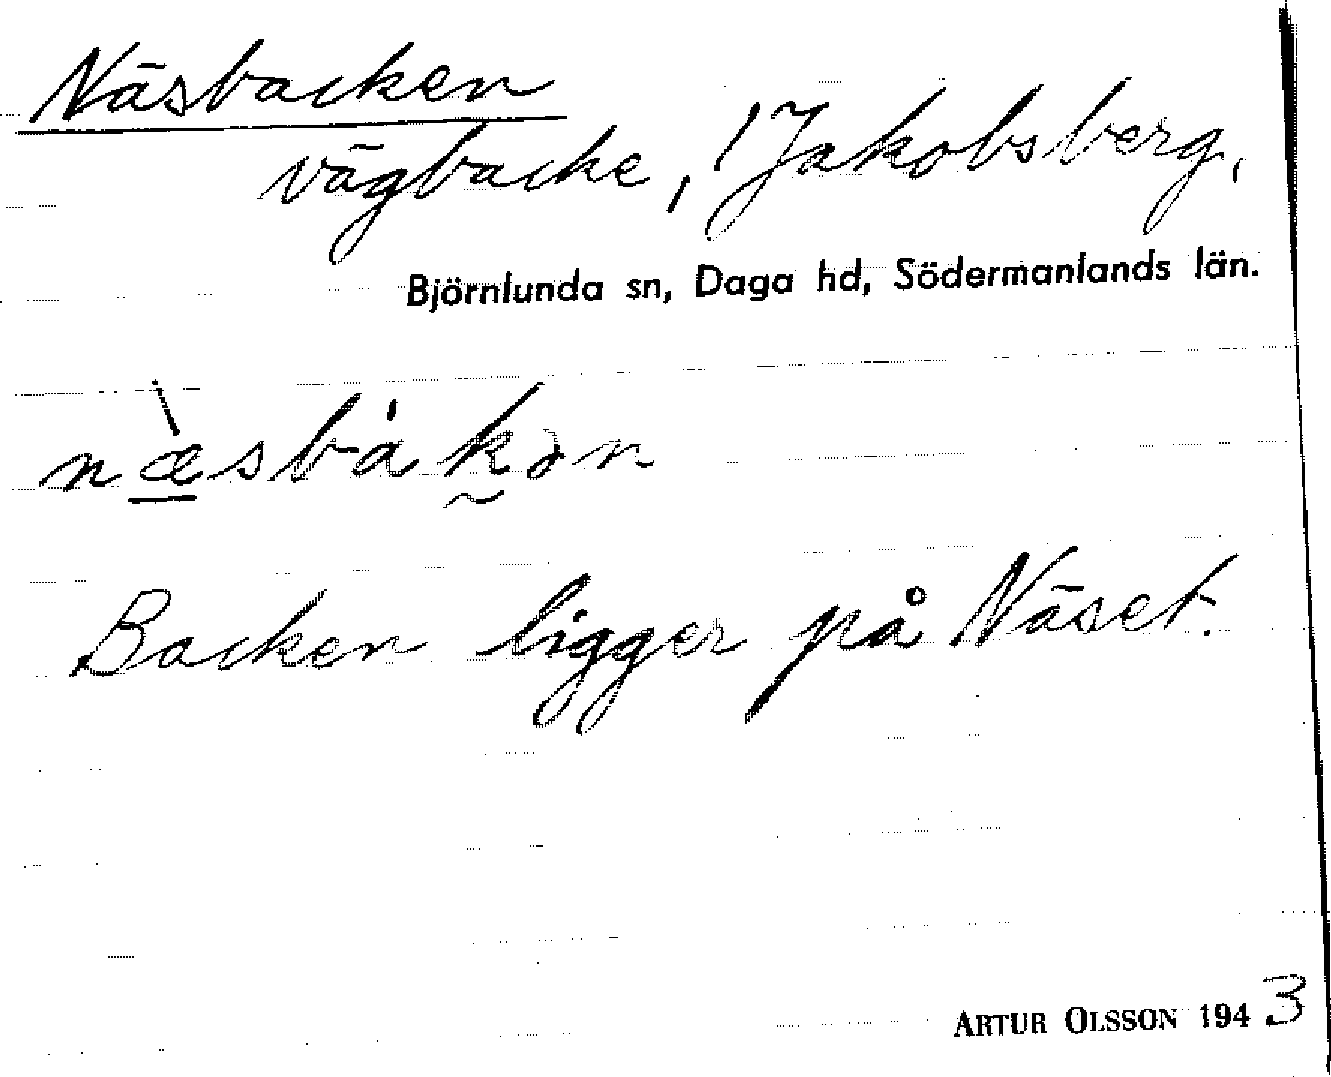 Näsbacken
vägbacke, 1 Jakobsberg,
Björnlunda sn, Daga hd, Södermanlands län.
næ̀sbákən
Backen ligger på Näset.
ARTUR OLSSON 1943